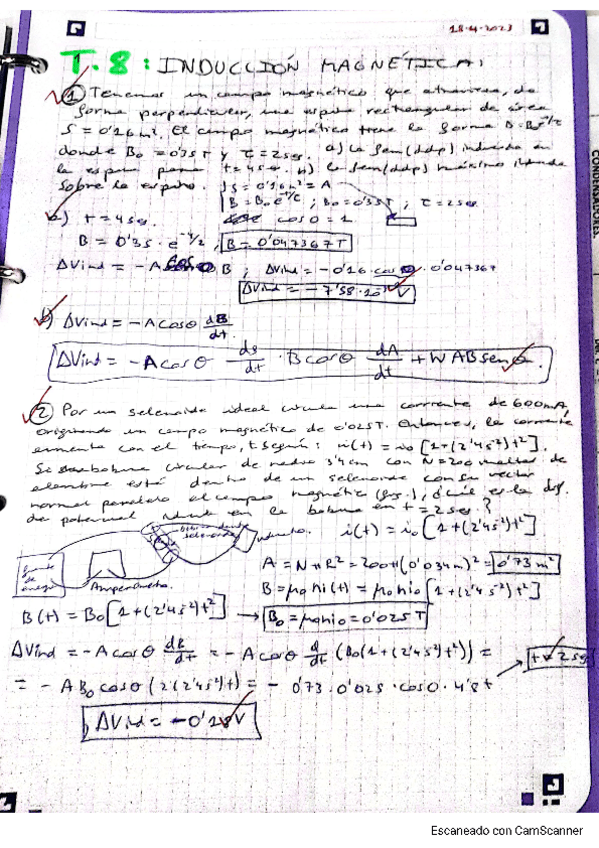 18-4-2023
T.8: INDUCCIÓN MAGNÉTICA:
① Tenemos un campo magnético que atraviesa, de
forma perpendicular, una espira rectangular de área
S = 0'16 m². El campo magnético tiene la forma B = B₀e^-t/τ
donde B₀ = 0'35T y τ = 2seg. a) la fem(ddp) inducida en
la espira para t = 4seg. b) la fem(ddp) máxima
sobre la espira. S = 0'16m² = A
B = B₀e^-t/τ; B₀ = 0'35T; τ = 2seg
a) t = 4seg. cos0 = 1
B = 0'35 · e^-4/2; B = 0'047367T
ΔVind = -A cosθ B; ΔVind = -0'16 cos0 · 0'047367
ΔVind = -7'58·10⁻³ V
b) ΔVind = -A cosθ dB/dt
ΔVind = -A cosθ dB/dt · B cosθ dA/dt + W AB senθ.
② Por un selenoide ideal circula una corriente de 600mA,
originando un campo magnético de 0'025T. Entonces, la corriente
aumenta con el tiempo, t según: i(t) = i₀[1+(2'4s⁻²)t²].
Si bobina circular de radio 3'4cm con N=200 vueltas de
alambre está dentro de un selenoide con su vector
normal paralelo al campo magnético (fig.), ¿cuál es la dif.
de potencial en la bobina en t = 2seg.?
i(t) = i₀[1+(2'4s⁻²)t²]
Amperímetro.
A = NπR² = 200π(0'034m)² = 0'73m²
B = μ₀ni(t) = μ₀ni₀[1+(2'4s⁻²)t²]
B(t) = B₀[1+(2'4s⁻²)t²] → B₀ = μ₀ni₀ = 0'025T
ΔVind = -A cosθ dB/dt = -A cosθ d/dt (B₀(1+(2'4s⁻²)t²)) =
= -AB₀ cosθ (2(2'4s⁻²)t) = -0'73·0'025·cos0·4'8t → t = 2seg
ΔVind = -0'18V
CONDENSADORES
Escaneado con CamScanner